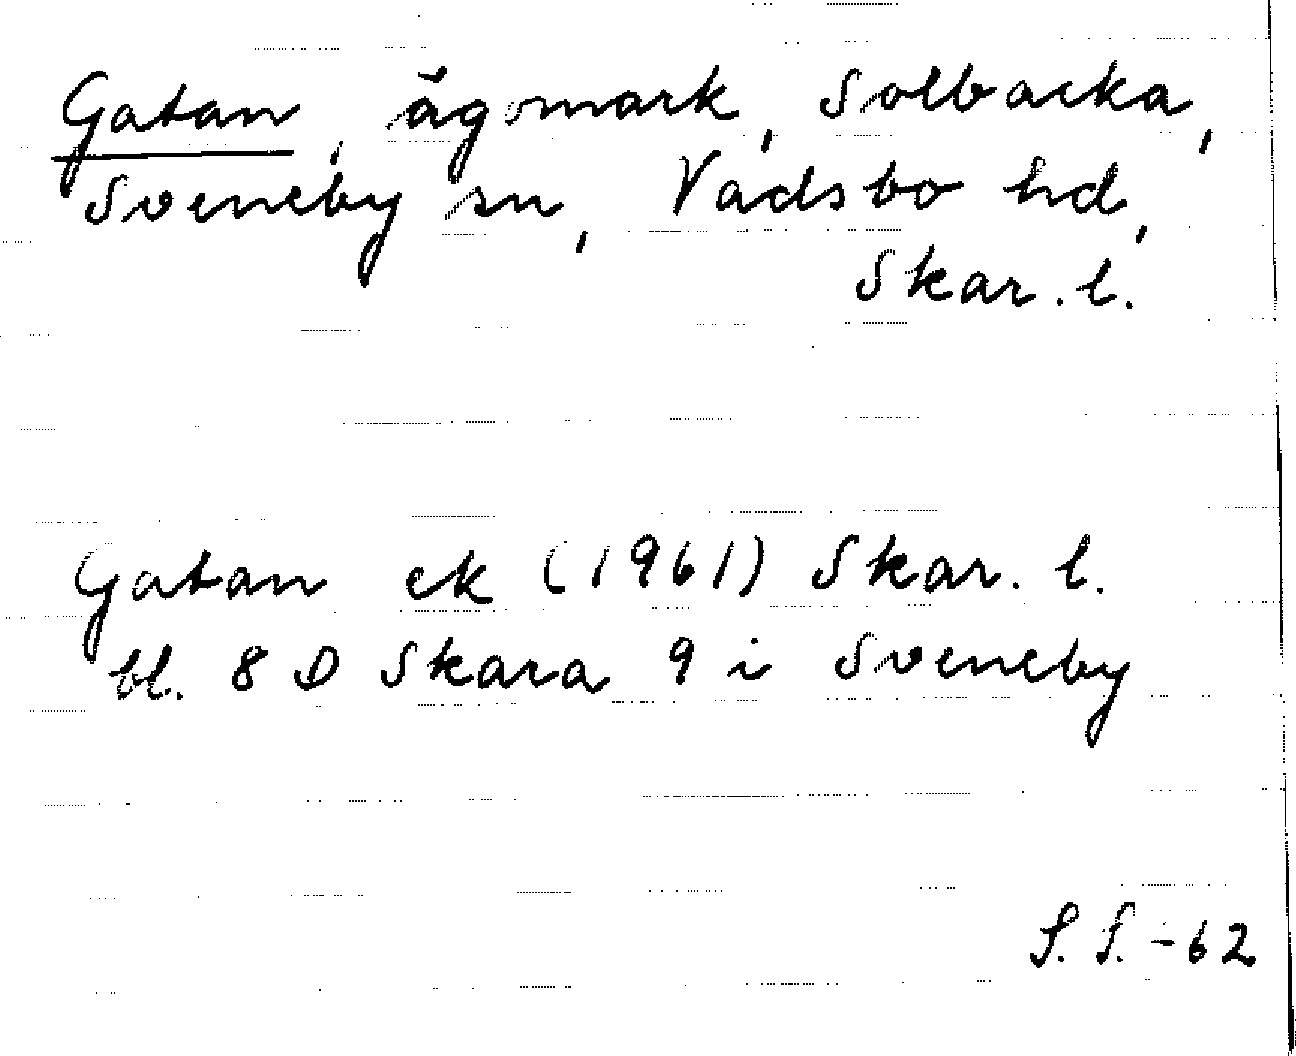 Gatan, ägomark, Solbacka,
Sveneby sn, Vadsbo hd,
Skar. l.
Gatan ek (1961) Skar. l.
bl. 8 D Skara 9 i Sveneby
S. S. -62